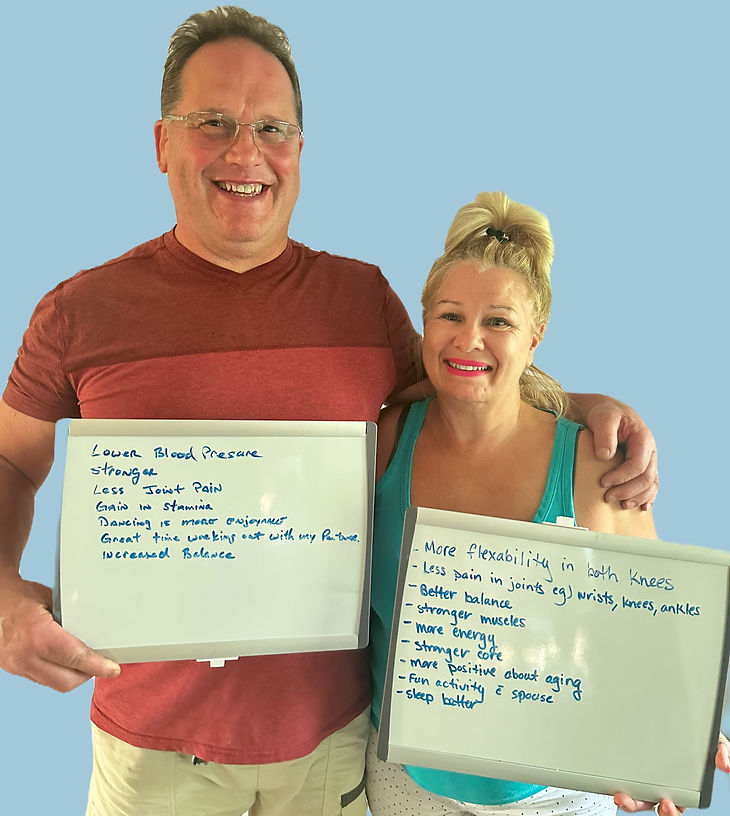 Lower Blood Presure
Stronger
Less Joint Pain
Gain in Stamina
Dancing is more enjoyable
Great time working out with my Partner.
Increased Balance
- More flexability in both knees
- Less pain in joints eg) wrists, knees, ankles
- Better balance
- stronger muscles
- more energy
- stronger core
- more positive about aging
- Fun activity c̄ spouse
- sleep better